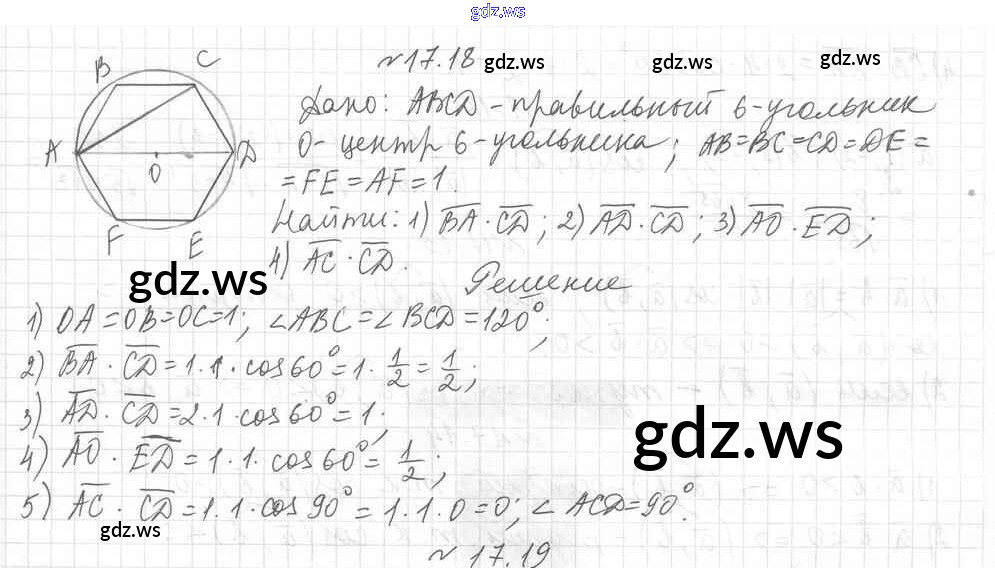 gdz.ws
№17.18 gdz.ws gdz.ws gdz.ws
B C
A O D
F E
Дано: ABCD - правильный 6-угольник
O - центр 6-угольника; AB=BC=CD=DE=
=FE=AF=1.
Найти: 1) \overline{BA} · \overline{CD}; 2) \overline{AD} · \overline{CD}; 3) \overline{AO} · \overline{ED};
4) \overline{AC} · \overline{CD}.
gdz.ws
Решение
1) OA=OB=OC=1; ∠ABC=∠BCD=120°;
2) \overline{BA} · \overline{CD}=1·1·cos60°=1·1/2=1/2;
3) \overline{AD} · \overline{CD}=2·1·cos60°=1;
gdz.ws
4) \overline{AO} · \overline{ED}=1·1·cos60°=1/2;
5) \overline{AC} · \overline{CD}=1·1·cos90°=1·1·0=0; ∠ACD=90°.
gdz.ws
№17.19